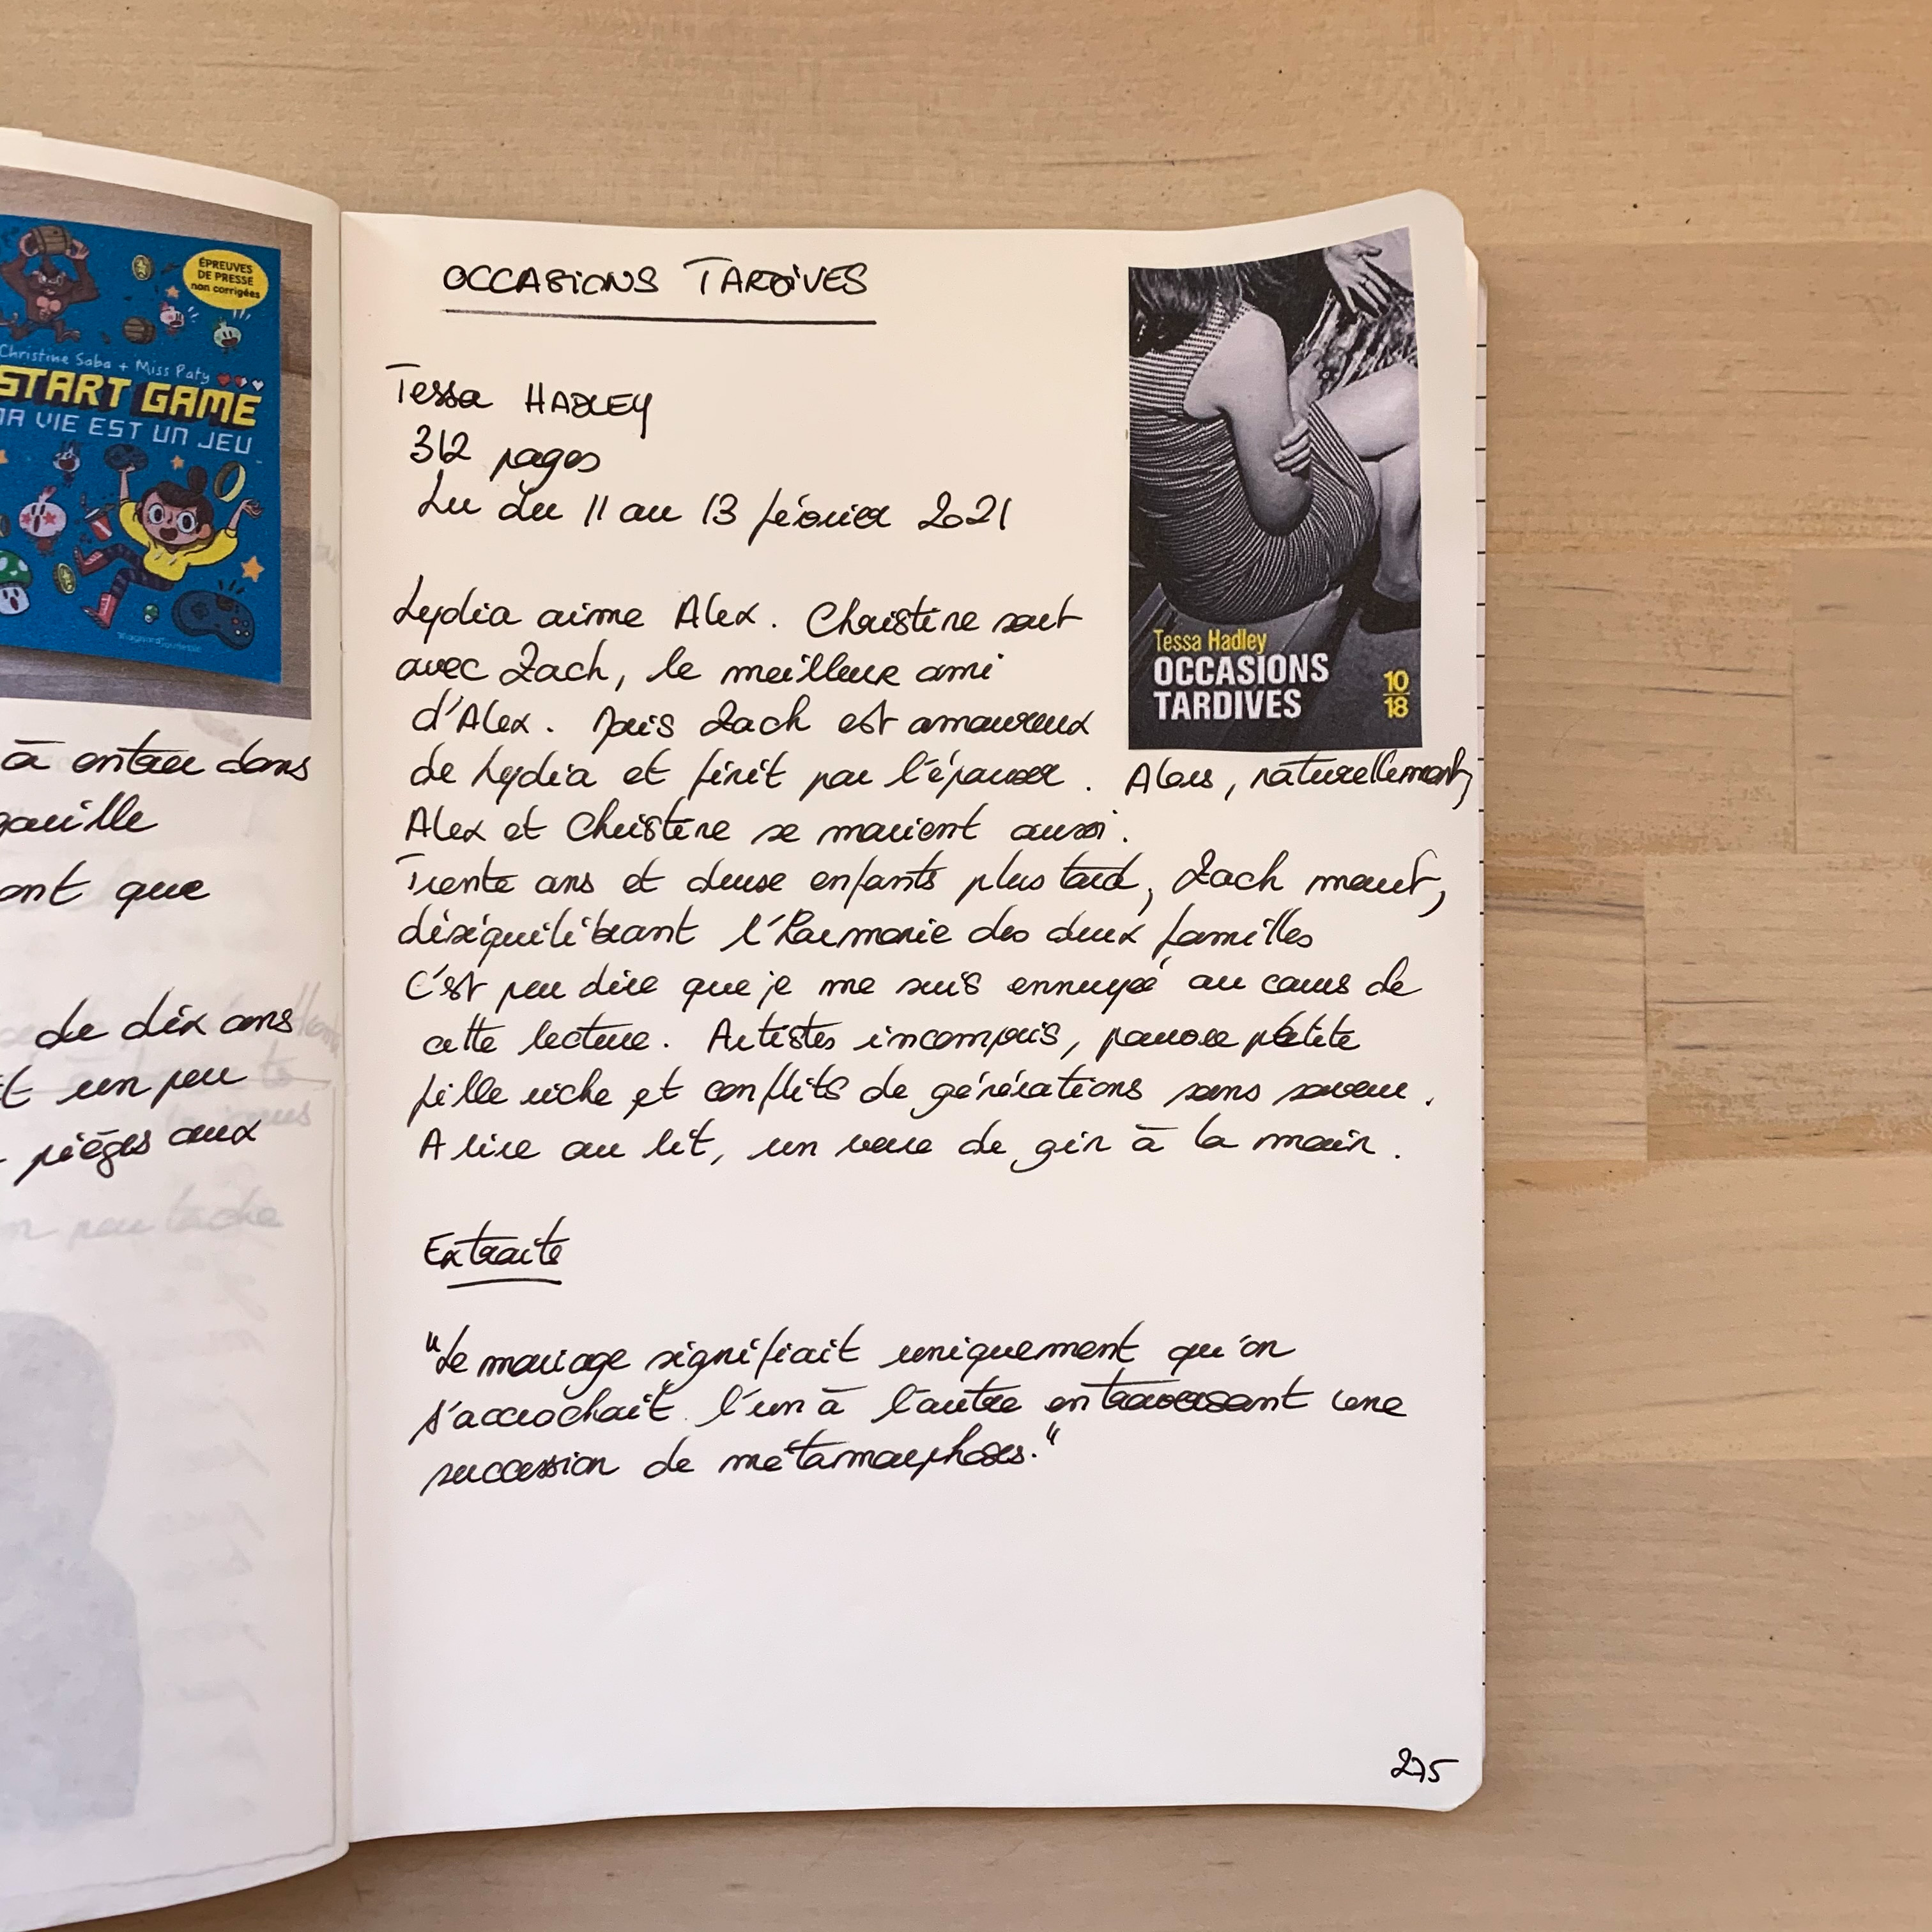 ÉPREUVES
DE PRESSE
non corrigées
Christine Saba + Miss Paty
START GAME
MA VIE EST UN JEU
à entrer dans
ant que
de dix ans
un peu
pièges aux
OCCASIONS TARDIVES
Tessa HADLEY
312 pages
Lu du 11 au 13 février 2021
Lydia aime Alex. Christine sort
avec Zach, le meilleur ami
d'Alex. Mais Zach est amoureux
de Lydia et finit par l'épouser. Alors, naturellement,
Alex et Christine se marient aussi.
Trente ans et deux enfants plus tard, Zach meurt,
déséquilibrant l'harmonie des deux familles
C'est peu dire que je me suis ennuyée au cours de
cette lecture. Artistes incompris, pauvre petite
fille riche et conflits de générations sans saveur.
A lire au lit, un verre de gin à la main.
Extraits
"Le mariage signifiait uniquement qu'on
s'accrochait l'un à l'autre en traversant une
succession de métamorphoses."
275
Tessa Hadley
OCCASIONS
TARDIVES
10
18